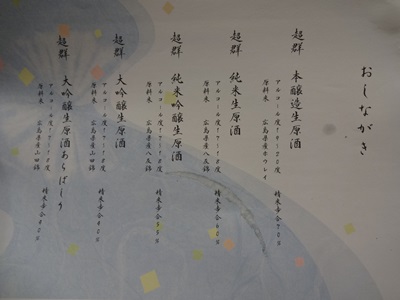 おしながき
超群 本醸造生原酒
アルコール度19～20度 精米歩合70%
原料米 広島県産ホウレイ
超群 純米生原酒
アルコール度17～18度 精米歩合60%
原料米 広島県産八反錦
超群 純米吟醸生原酒
アルコール度17～18度 精米歩合55%
原料米 広島県産八反錦
超群 大吟醸生原酒
アルコール度17～18度 精米歩合40%
原料米 広島県産山田錦
超群 大吟醸生原酒あらばしり
アルコール度17～18度 精米歩合40%
原料米 広島県産山田錦